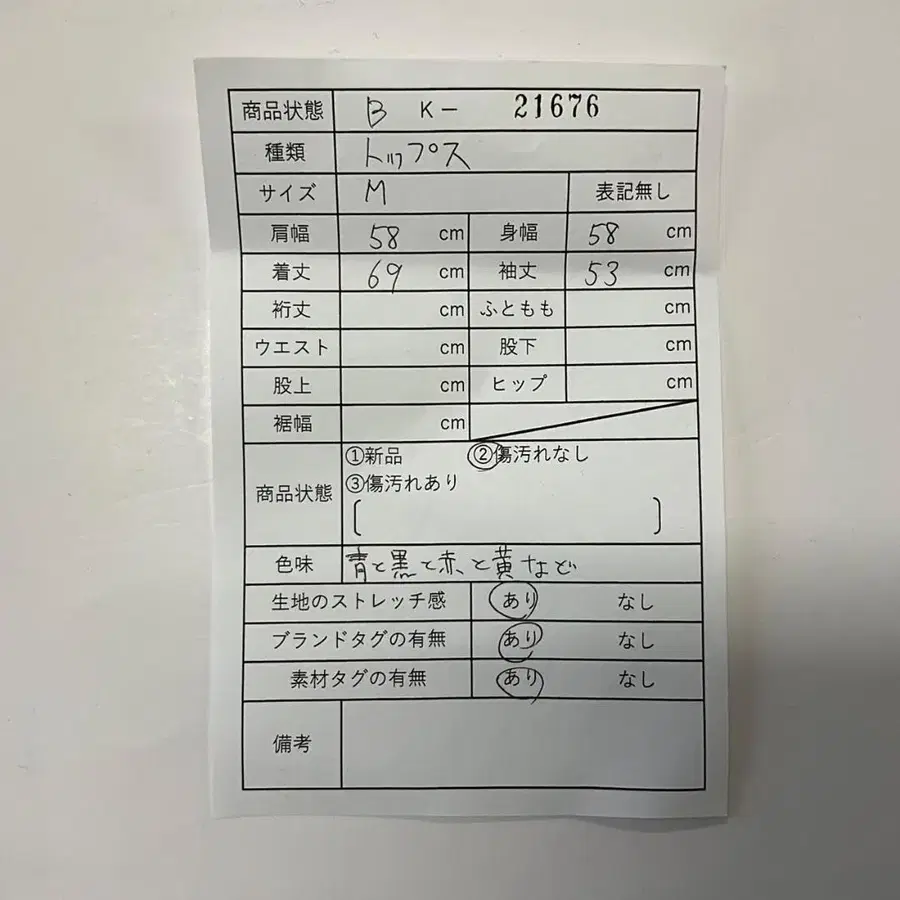 商品状態 B K- 21676
種類 トップス
サイズ M 表記無し
肩幅 58 cm 身幅 58 cm
着丈 69 cm 袖丈 53 cm
裄丈 cm ふともも cm
ウエスト cm 股下 cm
股上 cm ヒップ cm
裾幅 cm
商品状態 ①新品 ②傷汚れなし
③傷汚れあり
[ ]
色味 青と黒と赤と黄など
生地のストレッチ感 あり なし
ブランドタグの有無 あり なし
素材タグの有無 あり なし
備考